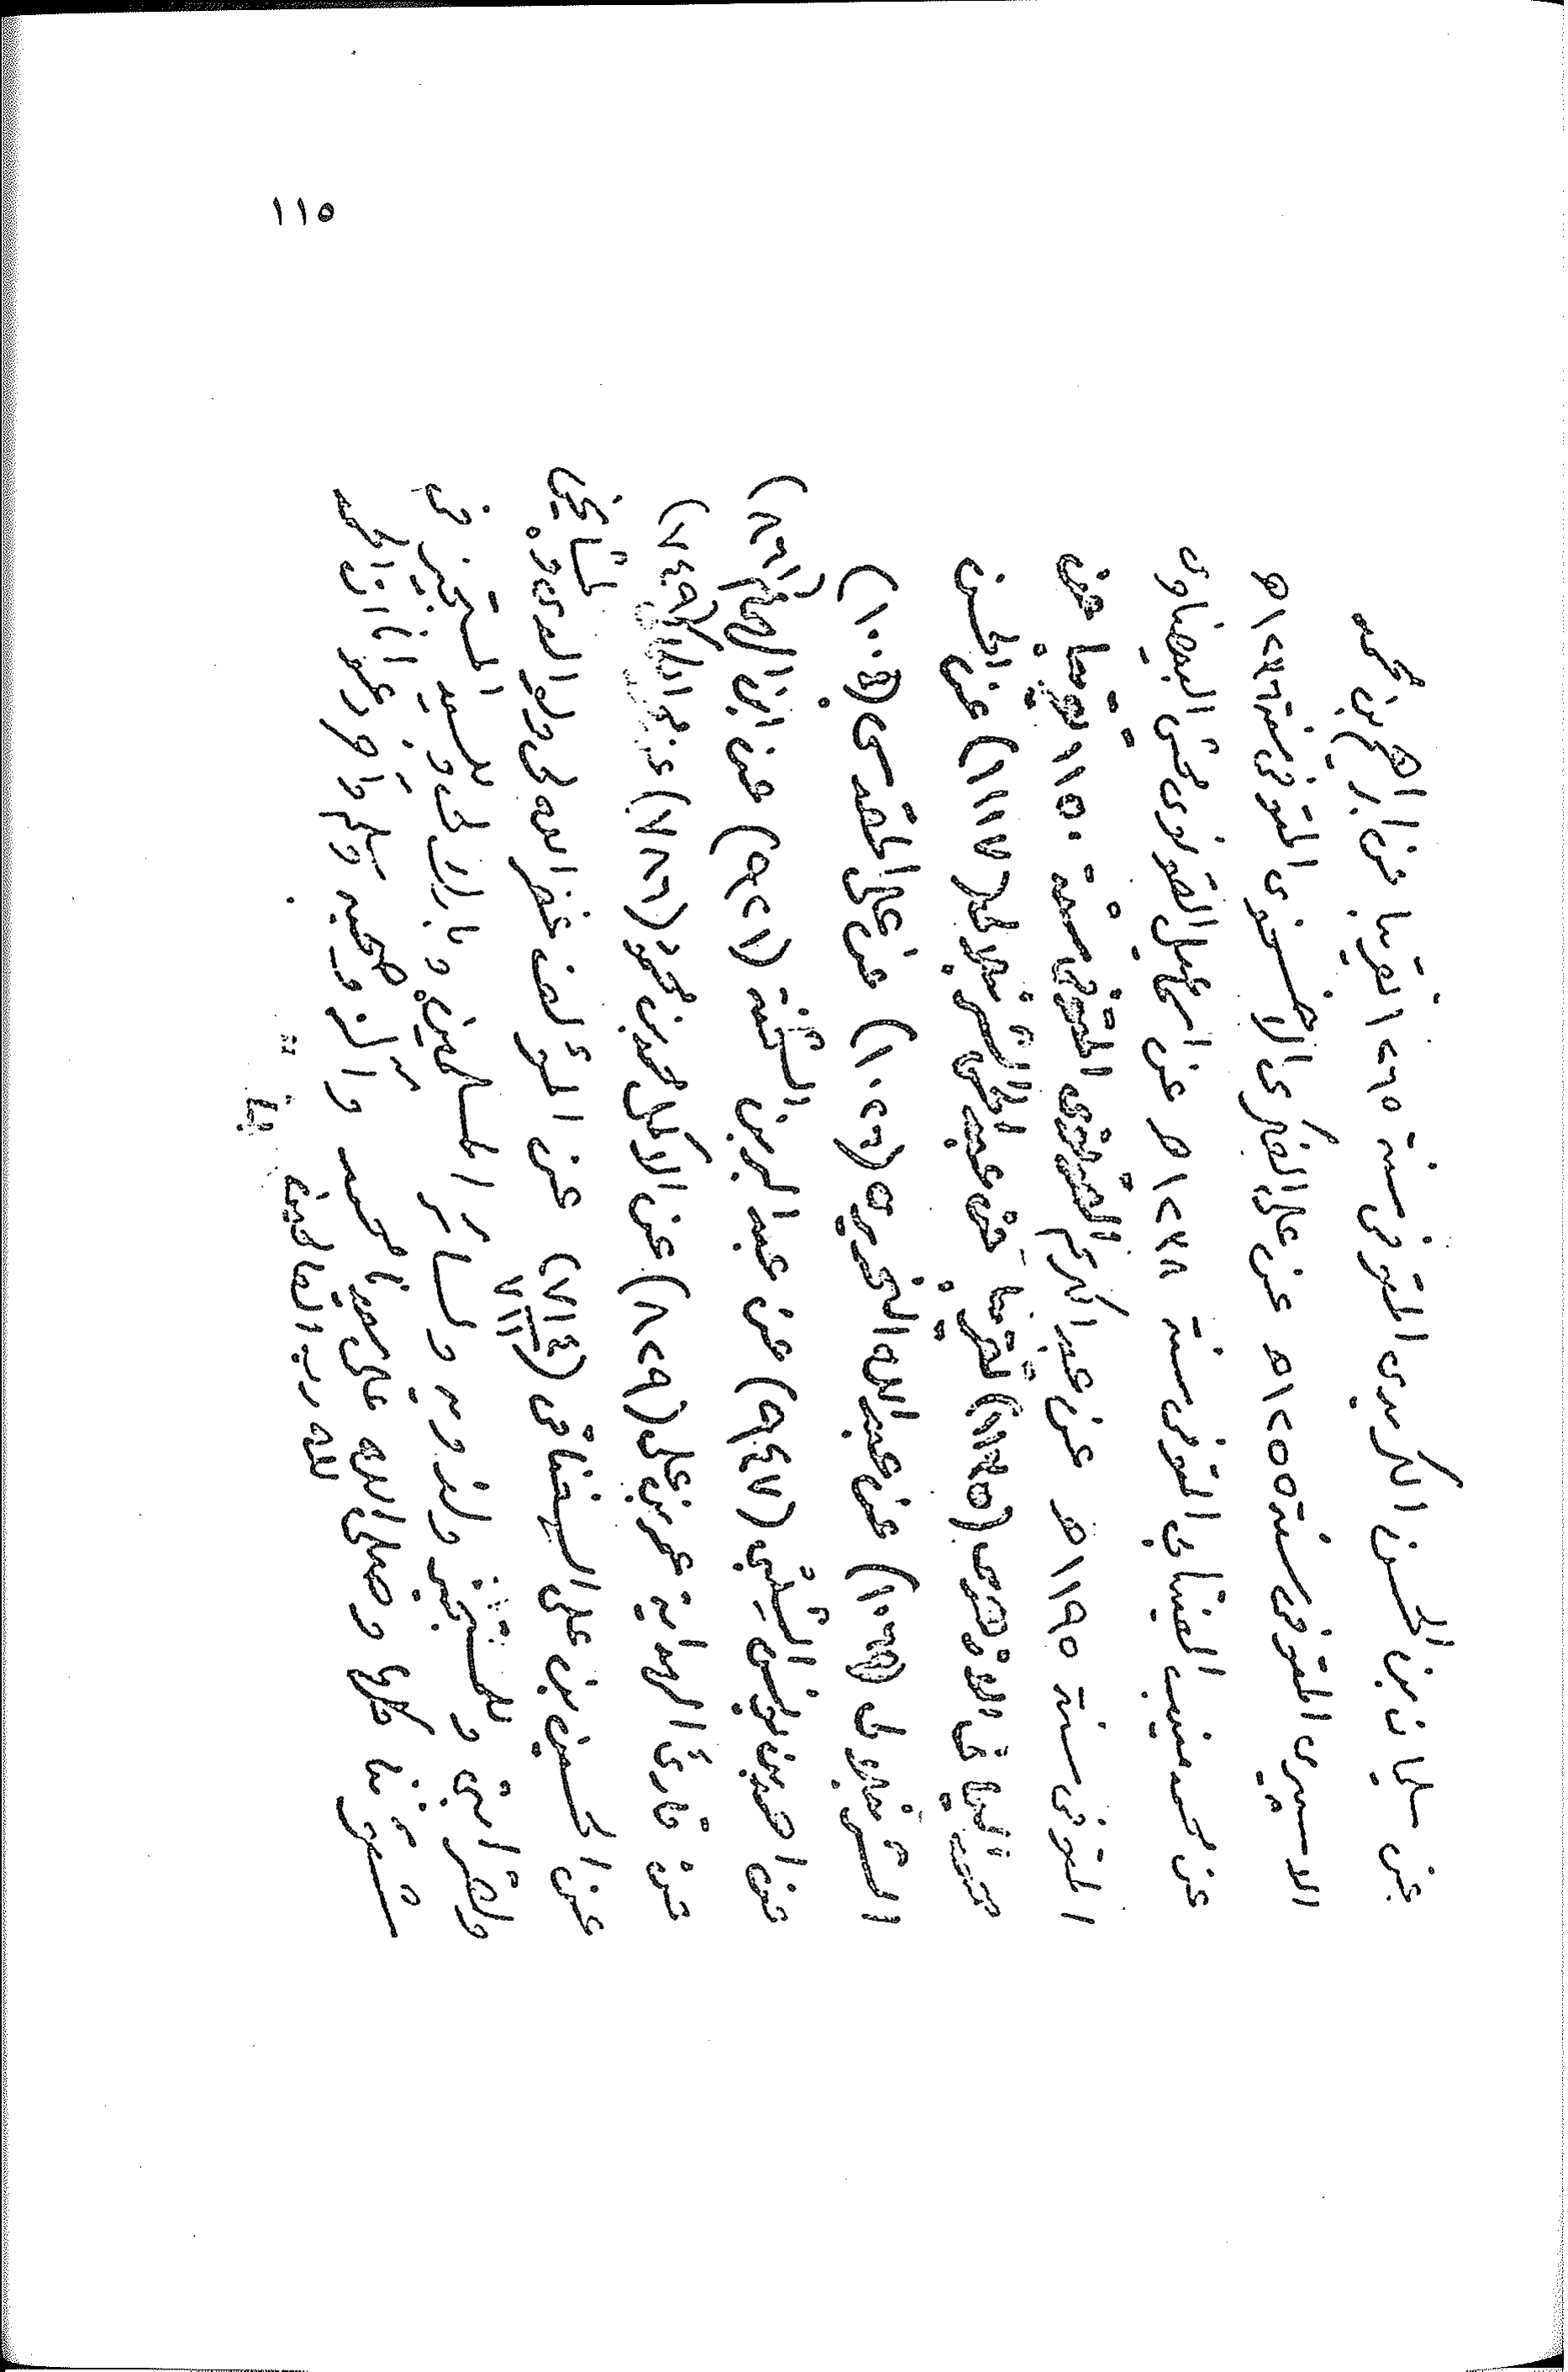 ١١٥
عن سليمان بن الحسن الكريدى المتوفى سنة ١٢٦٥ تقريبا عن ابراهيم بن محمد
الاسپيرى المتوفى سنة ١٢٥٥ه عن على الفكرى الاخسخوى المتوفى سنة ١٢٣٦ه
عن محمد منيب العينتابى المتوفى سنة ١٢٣٨ه عن اسمعيل القونوى محشى البيضاوى
المتوفى سنة ١١٩٥ه عن عبد الكريم القونوى المتوفى سنة ١١٥٠ تقريبا عن
محمد اليمانى الازهرى (١١٣٥) تقريبا عن عبد الحى الشرنبلالى (١١١٧) عن الحسن
الشرنبلالى (١٠٦٩) عن عبد الله النحريرى (١٠٢٦) عن على المقدسى (١٠٠٤)
عن احمد بن يونس الشلبى (٩٤٧) عن عبد البر بن الشحنة (٩٢١) عن ابن الهمام (٨٦١)
عن قارئ الهداية عمر بن على (٨٢٩) عن الاكمل محمد بن محمود (٧٨٦) عن محمد الكاكى (٧٤٩)
عن الحسين بن على السغناقى (٧١٤/٧١١) عن المؤلف غفر الله لى ولوالدى ولمشايخى
ولقرابتى وللمستجيز ولذويه ولسائر المسلمين وبارك لى وللسيد المستجيز فى
شئوننا كلها وصلى الله على سيدنا محمد وآله وصحبه وسلم وآخر دعوانا ان الحمد
لله رب العالمين